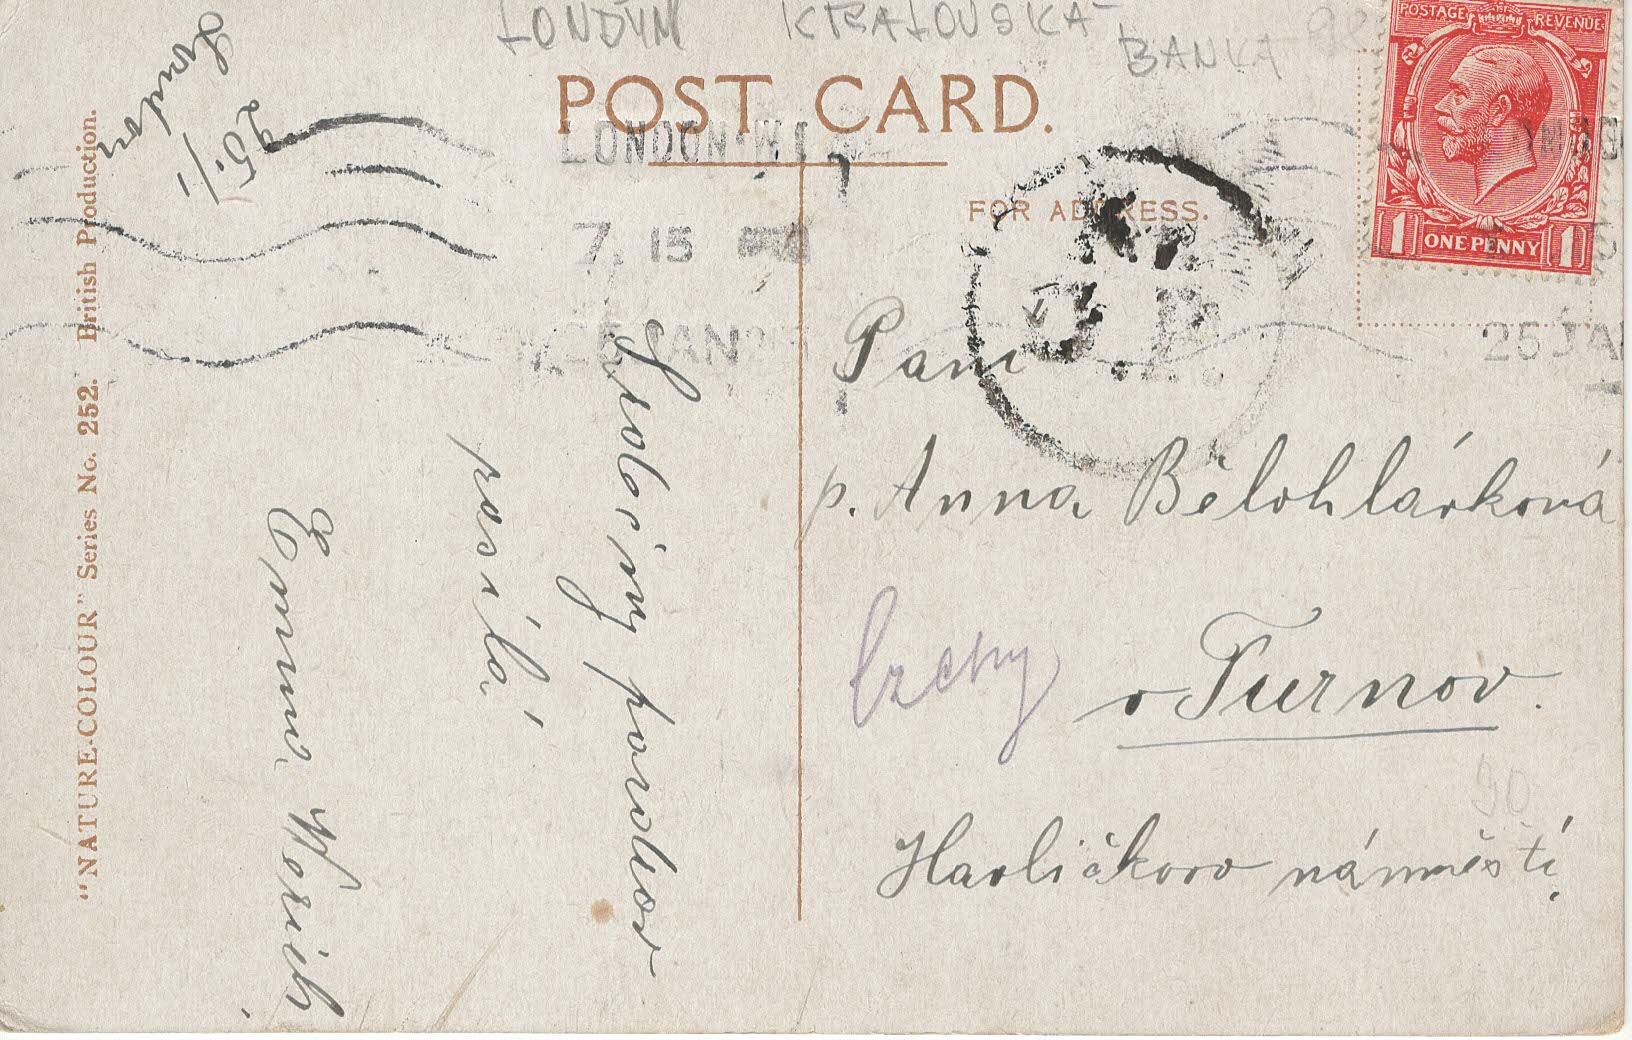 LONDÝN KRÁLOVSKÁ
BANKA
POST CARD.
FOR ADDRESS.
POSTAGE REVENUE
1 ONE PENNY 1
LONDON. W.1
7. 15
25 JAN
25 JA
London
25./1.
Srdečný pozdrav
posílá
Emma
Paní
p. Anna Bělohlávková
Czechy
v Turnov.
Havlíčkovo náměstí.
90
"NATURE-COLOUR" Series No. 252. British Production.